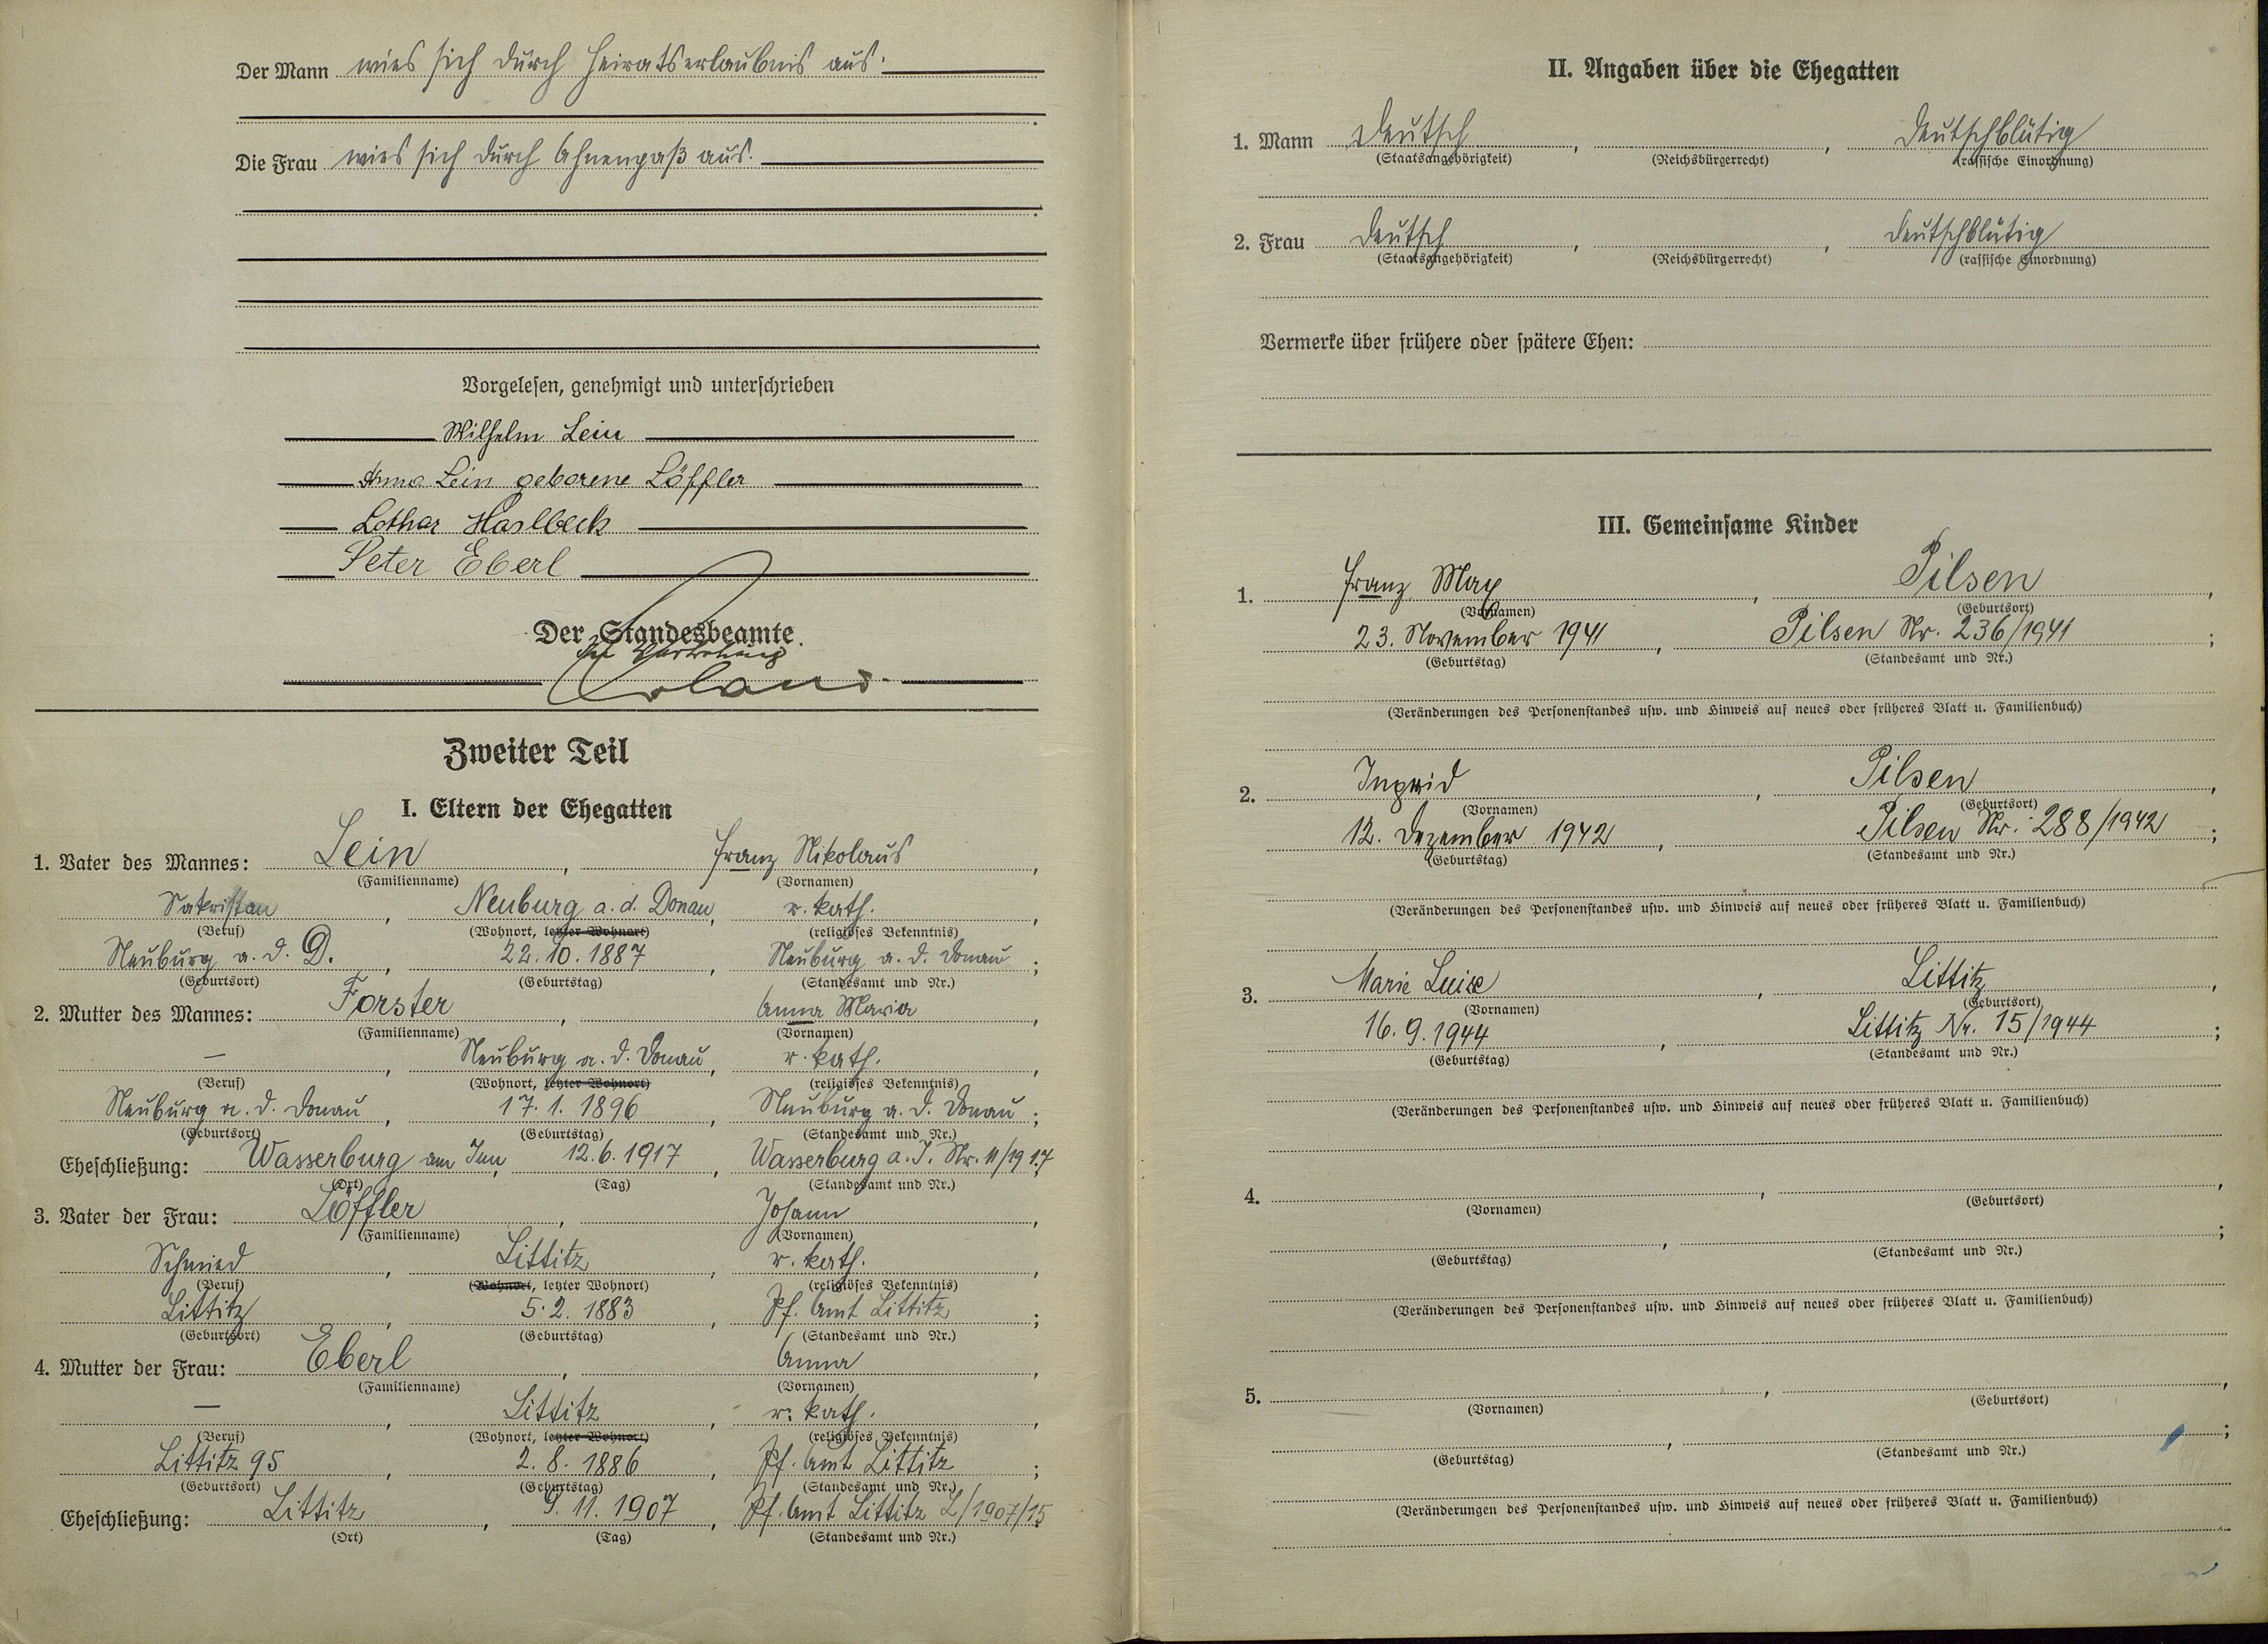 Der Mann wies sich durch Heiratserlaubnis aus.
Die Frau wies sich durch Ahnenpaß aus.
Vorgelesen, genehmigt und unterschrieben
Wilhelm Lein
Anna Lein geborene Löffler
Lothar Haslbeck
Peter Eberl
Der Standesbeamte
In Vertretung
Zweiter Teil
I. Eltern der Ehegatten
1. Vater des Mannes: Lein, Franz Nikolaus,
(Familienname) (Vornamen)
Sakristan, Neuburg a. d. Donau, r. kath.,
(Beruf) (Wohnort, letzter Wohnort) (religiöses Bekenntnis)
Neuburg a. d. D., 22.10.1887, Neuburg a. d. Donau;
(Geburtsort) (Geburtstag) (Standesamt und Nr.)
2. Mutter des Mannes: Forster, Anna Maria,
(Familienname) (Vornamen)
—, Neuburg a. d. Donau, r. kath.,
(Beruf) (Wohnort, letzter Wohnort) (religiöses Bekenntnis)
Neuburg a. d. Donau, 17.1.1896, Neuburg a. d. Donau;
(Geburtsort) (Geburtstag) (Standesamt und Nr.)
Eheschließung: Wasserburg am Inn, 12.6.1917, Wasserburg a. I. Nr. 11/1917;
(Ort) (Tag) (Standesamt und Nr.)
3. Vater der Frau: Löffler, Johann,
(Familienname) (Vornamen)
Schmied, Littitz, r. kath.,
(Beruf) (Wohnort, letzter Wohnort) (religiöses Bekenntnis)
Littitz, 5.2.1883, Pf. Amt Littitz;
(Geburtsort) (Geburtstag) (Standesamt und Nr.)
4. Mutter der Frau: Eberl, Anna,
(Familienname) (Vornamen)
—, Littitz, r. kath.,
(Beruf) (Wohnort, letzter Wohnort) (religiöses Bekenntnis)
Littitz 95, 2.8.1886, Pf. Amt Littitz;
(Geburtsort) (Geburtstag) (Standesamt und Nr.)
Eheschließung: Littitz, 9.11.1907, Pf. Amt Littitz L/1907/15;
(Ort) (Tag) (Standesamt und Nr.)
II. Angaben über die Ehegatten
1. Mann Deutsch, , deutschblütig
(Staatsangehörigkeit) (Reichsbürgerrecht) (rassische Einordnung)
2. Frau deutsch, , deutschblütig
(Staatsangehörigkeit) (Reichsbürgerrecht) (rassische Einordnung)
Vermerke über frühere oder spätere Ehen:
III. Gemeinsame Kinder
1. Franz Max, Pilsen,
(Vornamen) (Geburtsort)
23. November 1941, Pilsen Nr. 236/1941;
(Geburtstag) (Standesamt und Nr.)
(Veränderungen des Personenstandes usw. und Hinweis auf neues oder früheres Blatt u. Familienbuch)
2. Ingrid, Pilsen,
(Vornamen) (Geburtsort)
12. Dezember 1942, Pilsen Nr. 288/1942;
(Geburtstag) (Standesamt und Nr.)
(Veränderungen des Personenstandes usw. und Hinweis auf neues oder früheres Blatt u. Familienbuch)
3. Marie Luise, Littitz,
(Vornamen) (Geburtsort)
16.9.1944, Littitz Nr. 15/1944;
(Geburtstag) (Standesamt und Nr.)
(Veränderungen des Personenstandes usw. und Hinweis auf neues oder früheres Blatt u. Familienbuch)
4. , ,
(Vornamen) (Geburtsort)
, ;
(Geburtstag) (Standesamt und Nr.)
(Veränderungen des Personenstandes usw. und Hinweis auf neues oder früheres Blatt u. Familienbuch)
5. , ,
(Vornamen) (Geburtsort)
, ;
(Geburtstag) (Standesamt und Nr.)
(Veränderungen des Personenstandes usw. und Hinweis auf neues oder früheres Blatt u. Familienbuch)